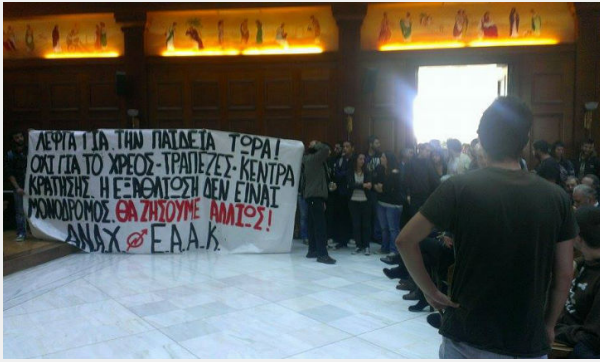 ΛΕΦΤΑ ΓΙΑ ΤΗΝ ΠΑΙΔΕΙΑ ΤΩΡΑ!
ΟΧΙ ΓΙΑ ΤΟ ΧΡΕΟΣ-ΤΡΑΠΕΖΕΣ-ΚΕΝΤΡΑ
ΚΡΑΤΗΣΗΣ. Η ΕΞΑΘΛΙΩΣΗ ΔΕΝ ΕΙΝΑΙ
ΜΟΝΟΔΡΟΜΟΣ. ΘΑ ΖΗΣΟΥΜΕ ΑΛΛΙΩΣ!
ΑΝΑΧ Ε.Α.Α.Κ.